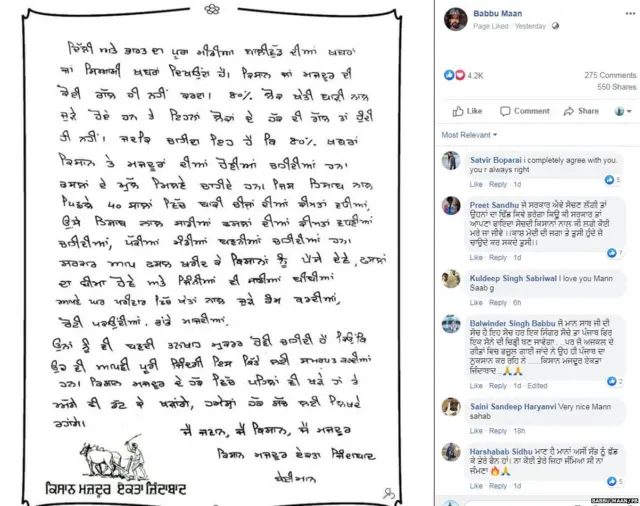 ਦਿੱਲੀ ਅਤੇ ਭਾਰਤ ਦਾ ਪੂਰਾ ਮੀਡੀਆ ਬਾਲੀਵੁੱਡ ਦੀਆਂ ਖਬਰਾਂ
ਜਾਂ ਸਿਆਸੀ ਖਬਰਾਂ ਦਿਖਾਉਂਦਾ ਹੈ। ਕਿਸਾਨ ਜਾਂ ਮਜ਼ਦੂਰ ਦੀ
ਕੋਈ ਗੱਲ ਹੀ ਨਹੀਂ ਕਰਦਾ। 80% ਲੋਕ ਖੇਤੀ ਬਾੜੀ ਨਾਲ
ਜੁੜੇ ਹੋਏ ਹਨ ਤੇ ਇਹਨਾਂ ਲੋਕਾਂ ਦੇ ਹੱਕ ਦੀ ਗੱਲ ਤਾਂ ਹੁੰਦੀ
ਹੀ ਨਹੀਂ। ਜਦਕਿ ਚਾਹੀਦਾ ਇਹ ਹੈ ਕਿ 80% ਖਬਰਾਂ
ਕਿਸਾਨ ਤੇ ਮਜ਼ਦੂਰਾਂ ਦੀਆਂ ਹੋਣੀਆਂ ਚਾਹੀਦੀਆਂ ਹਨ।
ਫਸਲਾਂ ਦੇ ਮੁੱਲ ਮਿਲਣੇ ਚਾਹੀਦੇ ਹਨ। ਜਿਸ ਹਿਸਾਬ ਨਾਲ
ਪਿਛਲੇ 40 ਸਾਲਾਂ ਵਿੱਚ ਬਾਕੀ ਚੀਜ਼ਾਂ ਦੀਆਂ ਕੀਮਤਾਂ ਵਧੀਆਂ,
ਉਸੇ ਹਿਸਾਬ ਨਾਲ ਸਾਡੀਆਂ ਫਸਲਾਂ ਦੀਆਂ ਕੀਮਤਾਂ ਵਧਣੀਆਂ
ਚਾਹੀਦੀਆਂ, ਪੱਕੀਆਂ ਮੰਡੀਆਂ ਬਣਨੀਆਂ ਚਾਹੀਦੀਆਂ ਹਨ।
ਸਰਕਾਰ ਆਪ ਫਸਲ ਖਰੀਦ ਕੇ ਕਿਸਾਨਾਂ ਨੂੰ ਪੈਸੇ ਦੇਵੇ, ਫਸਲਾਂ
ਦਾ ਬੀਮਾ ਹੋਵੇ ਅਤੇ ਜਿੰਨੀਆਂ ਵੀ ਬੀਬੀਆਂ
ਆਪਣੇ ਘਰ ਪਰਿਵਾਰ ਵਿੱਚ ਖੇਤਾਂ ਨਾਲ ਜੁੜੇ ਕੰਮ ਕਰਦੀਆਂ,
ਰੋਟੀ ਪਕਾਉਂਦੀਆਂ,
ਉਨਾਂ ਨੂੰ ਵੀ ਬਣਦੀ ਤਨਖਾਹ ਮੁਕਰਰ ਹੋਣੀ ਚਾਹੀਦੀ ਹੈ ਕਿਉਂਕਿ
ਉਹ ਵੀ ਆਪਣੀ ਪੂਰੀ ਜ਼ਿੰਦਗੀ ਇਸ ਕਿੱਤੇ ਲਈ ਸਮਰਪਤ ਕਰਦੀਆਂ
ਹਨ। ਕਿਸਾਨ ਮਜ਼ਦੂਰ ਦੇ ਹੱਕ ਵਿੱਚ ਪਹਿਲਾਂ ਵੀ ਖੜੇ ਹਾਂ ਤੇ
ਅੱਗੇ ਵੀ ਡੱਟ ਕੇ ਖੜਾਂਗੇ, ਹਮੇਸ਼ਾਂ ਹੱਕ ਸੱਚ ਲਈ ਲਿਖਦੇ
ਰਹਾਂਗੇ।
ਜੈ ਜਵਾਨ, ਜੈ ਕਿਸਾਨ, ਜੈ ਮਜ਼ਦੂਰ
ਕਿਸਾਨ ਮਜ਼ਦੂਰ ਏਕਤਾ ਜ਼ਿੰਦਾਬਾਦ
ਬੇਈਮਾਨ
ਕਿਸਾਨ ਮਜ਼ਦੂਰ ਏਕਤਾ ਜ਼ਿੰਦਾਬਾਦ
Babbu Maan
Page Liked · Yesterday
4.2K
275 Comments
550 Shares
Like Comment Share
Most Relevant
Satvir Boparai i completely agree with you. you r always right
5
Like · Reply · 1d
Preet Sandhu ਜੇ ਸਰਕਾਰ ਐਵੇ ਸੋਚਣ ਲੱਗੀ ਤਾਂ
ਉਹਨਾਂ ਦਾ ਢਿੱਡ ਕਿਵੇ ਭਰੇਗਾ ਕਿਉ ਕੀ ਸਰਕਾਰ ਤਾਂ
ਆਪਣਾ ਫਾਇਦਾ ਸੋਚਦੀ ਕਿਸਾਨਾਂ ਨਾਲ ਕੀ ਲਗੇ ਕੋਈ
ਮਰੇ ਜਾਂ ਜੀਵੇ ।।ਕਾਸ਼ ਮੋਦੀ ਦੀ ਜਗਾ ਤੇ ਤੁਸੀ ਹੁੰਦੇ ਜੋ
ਚਾਉਂਦੇ ਕਰ ਸਕਦੇ ਤੁਸੀ।।
7
Like · Reply · 1d
Kuldeep Singh Sabriwal I love you Mann
Saab g
Like · Reply · 6h
Balwinder Singh Babbu ਜੋ ਮਾਨ ਸਾਬ ਜੀ ਦੀ
ਸੋਚ ਹੈ ਇਹ ਸੋਚ ਹਰ ਇਕ ਸਿੰਗਰ ਸੋਚੇ ਤਾ ਪੰਜਾਬ ਫਿਰ
ਇਕ ਸੋਨੇ ਦੀ ਚਿੜੀ ਬਣ ਜਾਵੇਗਾ ....ਪਰ ਜੋ ਅਜਕਲ ਦੇ
ਗੀਤਾਂ ਵਿਚ ਫਜੂਲ ਗਾਈ ਜਾਂਦੇ ਨੇ ਉਹ ਹੀ ਪੰਜਾਬ ਦਾ
ਨੁਕਸਾਨ ਕਰ ਰਹਿ ਨੇ ......ਕਿਸਾਨ ਮਜਦੂਰ ਏਕਤਾ
ਜਿੰਦਾਬਾਦ.. 🙏🙏
2
Like · Reply · 1d · Edited
Saini Sandeep Haryanvi Very nice Mann
sahab
Like · Reply · 18h
Harshabab Sidhu ਮਾਣ ਹੈ ਮਾਨਾਂ ਅਸੀਂ ਸੱਭ ਨੂੰ ਛੱਡ
ਕੇ ਤੇਰੇ ਫੈਨ ਹਾਂ। ਨਾ ਕੋਈ ਤੇਰੇ ਜਿਹਾ ਜੰਮਿਆ ਸੀ ਨਾ
ਜੰਮਣਾ 🔥🙏
5
Like · Reply · 1d
BABBU MAAN/FB